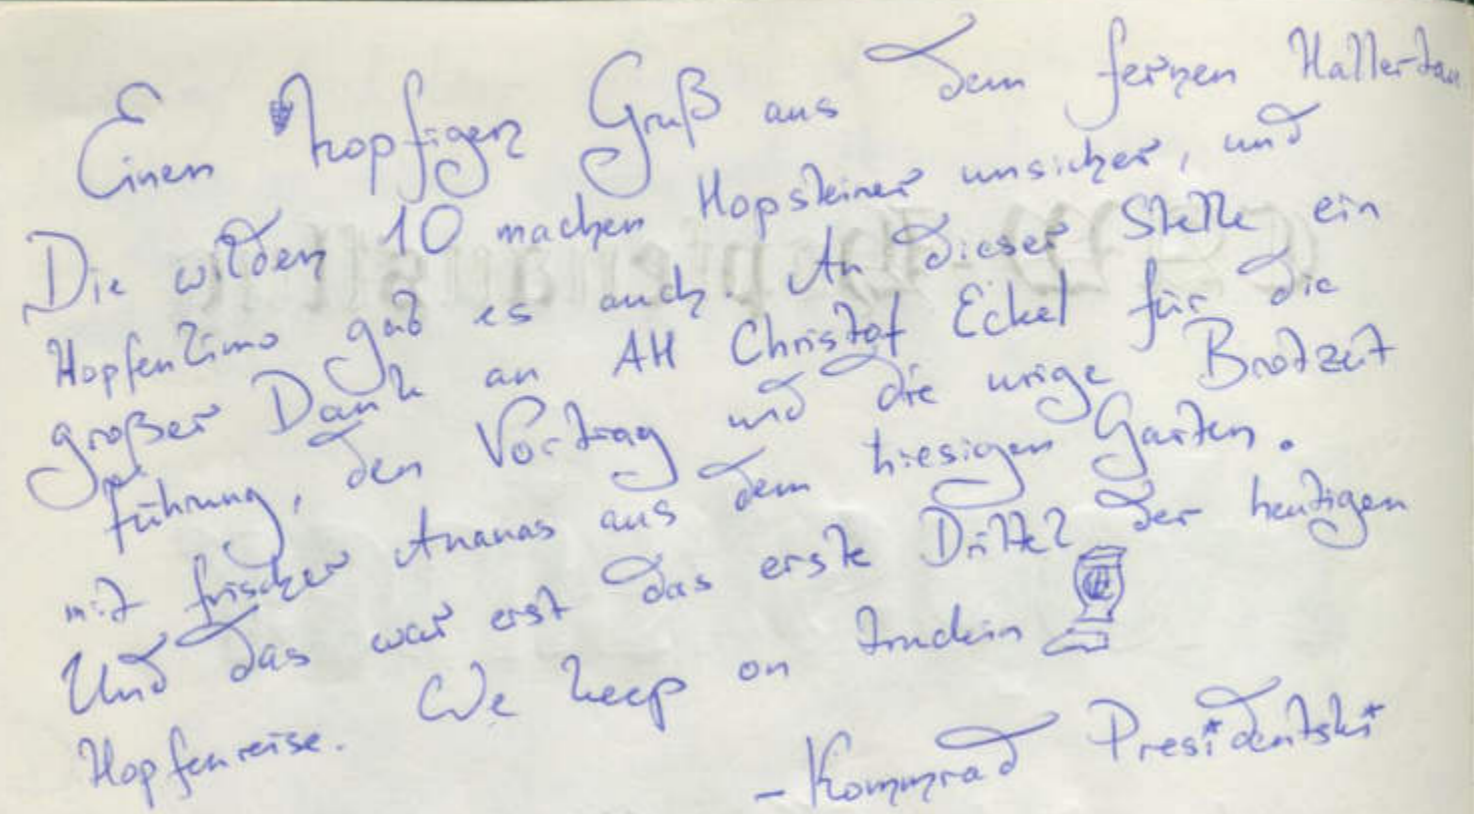 Einen hopfigen Gruß aus dem fernen Hallertau
Die wilden 10 machen Hopsteiner unsicher, und
Hopfenlimo gab es auch. An dieser Stelle ein
großer Dank an AH Christof Eckel für die
Führung, den Vortrag und die urige Brotzeit
mit frischer Ananas aus dem hiesigen Garten.
Und das war erst das erste Drittel der heutigen
Hopfenreise. We keep on truckin
- Kommrad Presidentski